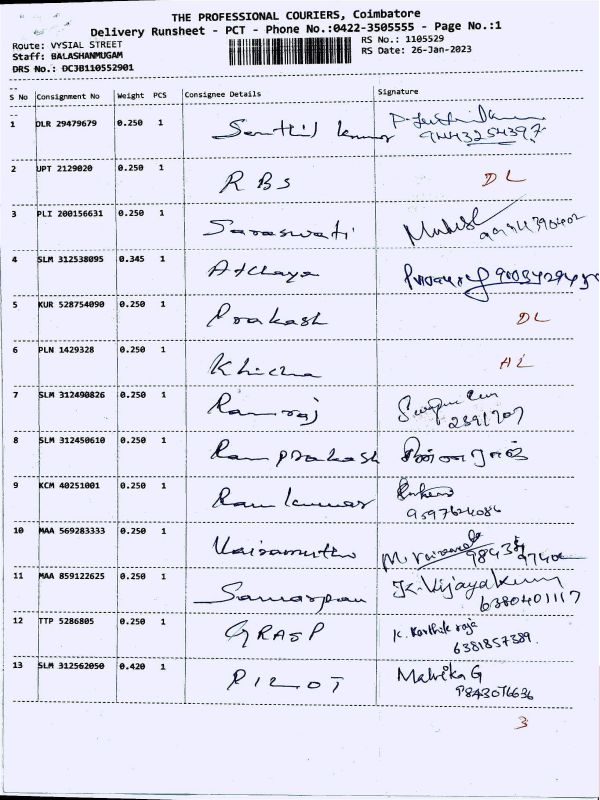 THE PROFESSIONAL COURIERS, Coimbatore
Delivery Runsheet - PCT - Phone No.:0422-3505555 - Page No.:1
Route: VYSIAL STREET RS No.: 1105529
Staff: BALASHANMUGAM RS Date: 26-Jan-2023
DRS No.: DC3B110552901
S No Consignment No Weight PCS Consignee Details Signature
1 DLR 29479679 0.250 1 Senthil kumar
9443254397
2 UPT 2129020 0.250 1 RBS DL
3 PLI 200156631 0.250 1 Saraswati
4 SLM 312538095 0.345 1 Atchaya
5 KUR 528754090 0.250 1 Prakash DL
6 PLN 1429328 0.250 1 Khicha AL
7 SLM 312490826 0.250 1 Ramraj
2391707
8 SLM 312450610 0.250 1 Ram prakash
9 KCM 40251001 0.250 1 Ram kumar
9597624086
10 MAA 569283333 0.250 1 Vairamuthu
11 MAA 859122625 0.250 1 Samarpan K. Vijayakumar
6380401117
12 TTP 5286805 0.250 1 GRASP K. Karthik raja
6381857389.
13 SLM 312562050 0.420 1 PILOT Malvika G
3